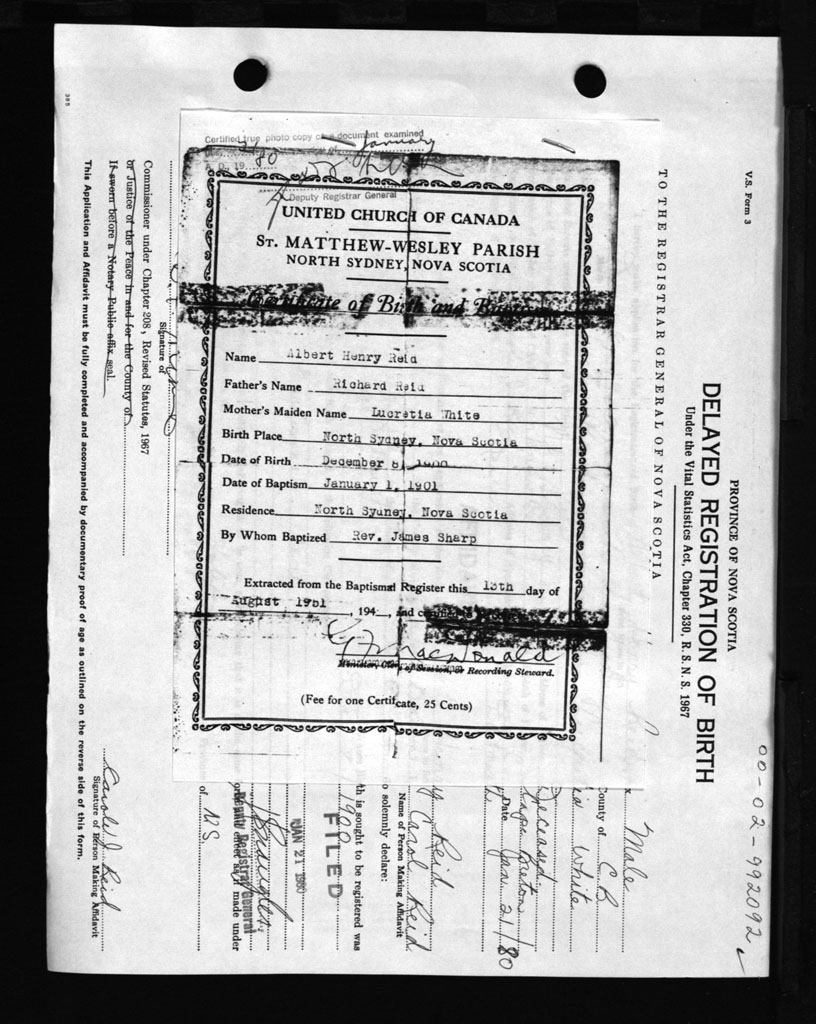 Certified true photo copy of a document examined
January
A. D., 19 80
Deputy Registrar General
UNITED CHURCH OF CANADA
ST. MATTHEW-WESLEY PARISH
NORTH SYDNEY, NOVA SCOTIA
Certificate of Birth and
Name Albert Henry Reid
Father's Name Richard Reid
Mother's Maiden Name Lucretia White
Birth Place North Sydney, Nova Scotia
Date of Birth December 8, 1900
Date of Baptism January 1, 1901
Residence North Sydney, Nova Scotia
By Whom Baptized Rev. James Sharp
Extracted from the Baptismal Register this 13th day of
August 1951, 194 , and
MacDonald
Minister, Clerk of Session, or Recording Steward.
(Fee for one Certificate, 25 Cents)
V.S. Form 3
00-02-992092
PROVINCE OF NOVA SCOTIA
DELAYED REGISTRATION OF BIRTH
Under the Vital Statistics Act, Chapter 330, R. S. N. S. 1967
TO THE REGISTRAR GENERAL OF NOVA SCOTIA
x Male
ounty of C.B.
White
Deceased
Cape Breton
Date Jan. 21/80
Reid
Carol Reid
Name of Person Making Affidavit
o solemnly declare:
th is sought to be registered was
1900
FILED
JAN 21 1980
Deputy Registrar General
effect as if made under
of N.S.
Signature of
Commissioner under Chapter 208, Revised Statutes, 1967
or Justice of the Peace in and for the County of
If sworn before a Notary Public affix seal.
Carole J Reid
Signature of Person Making Affidavit
This Application and Affidavit must be fully completed and accompanied by documentary proof of age as outlined on the reverse side of this form.
385